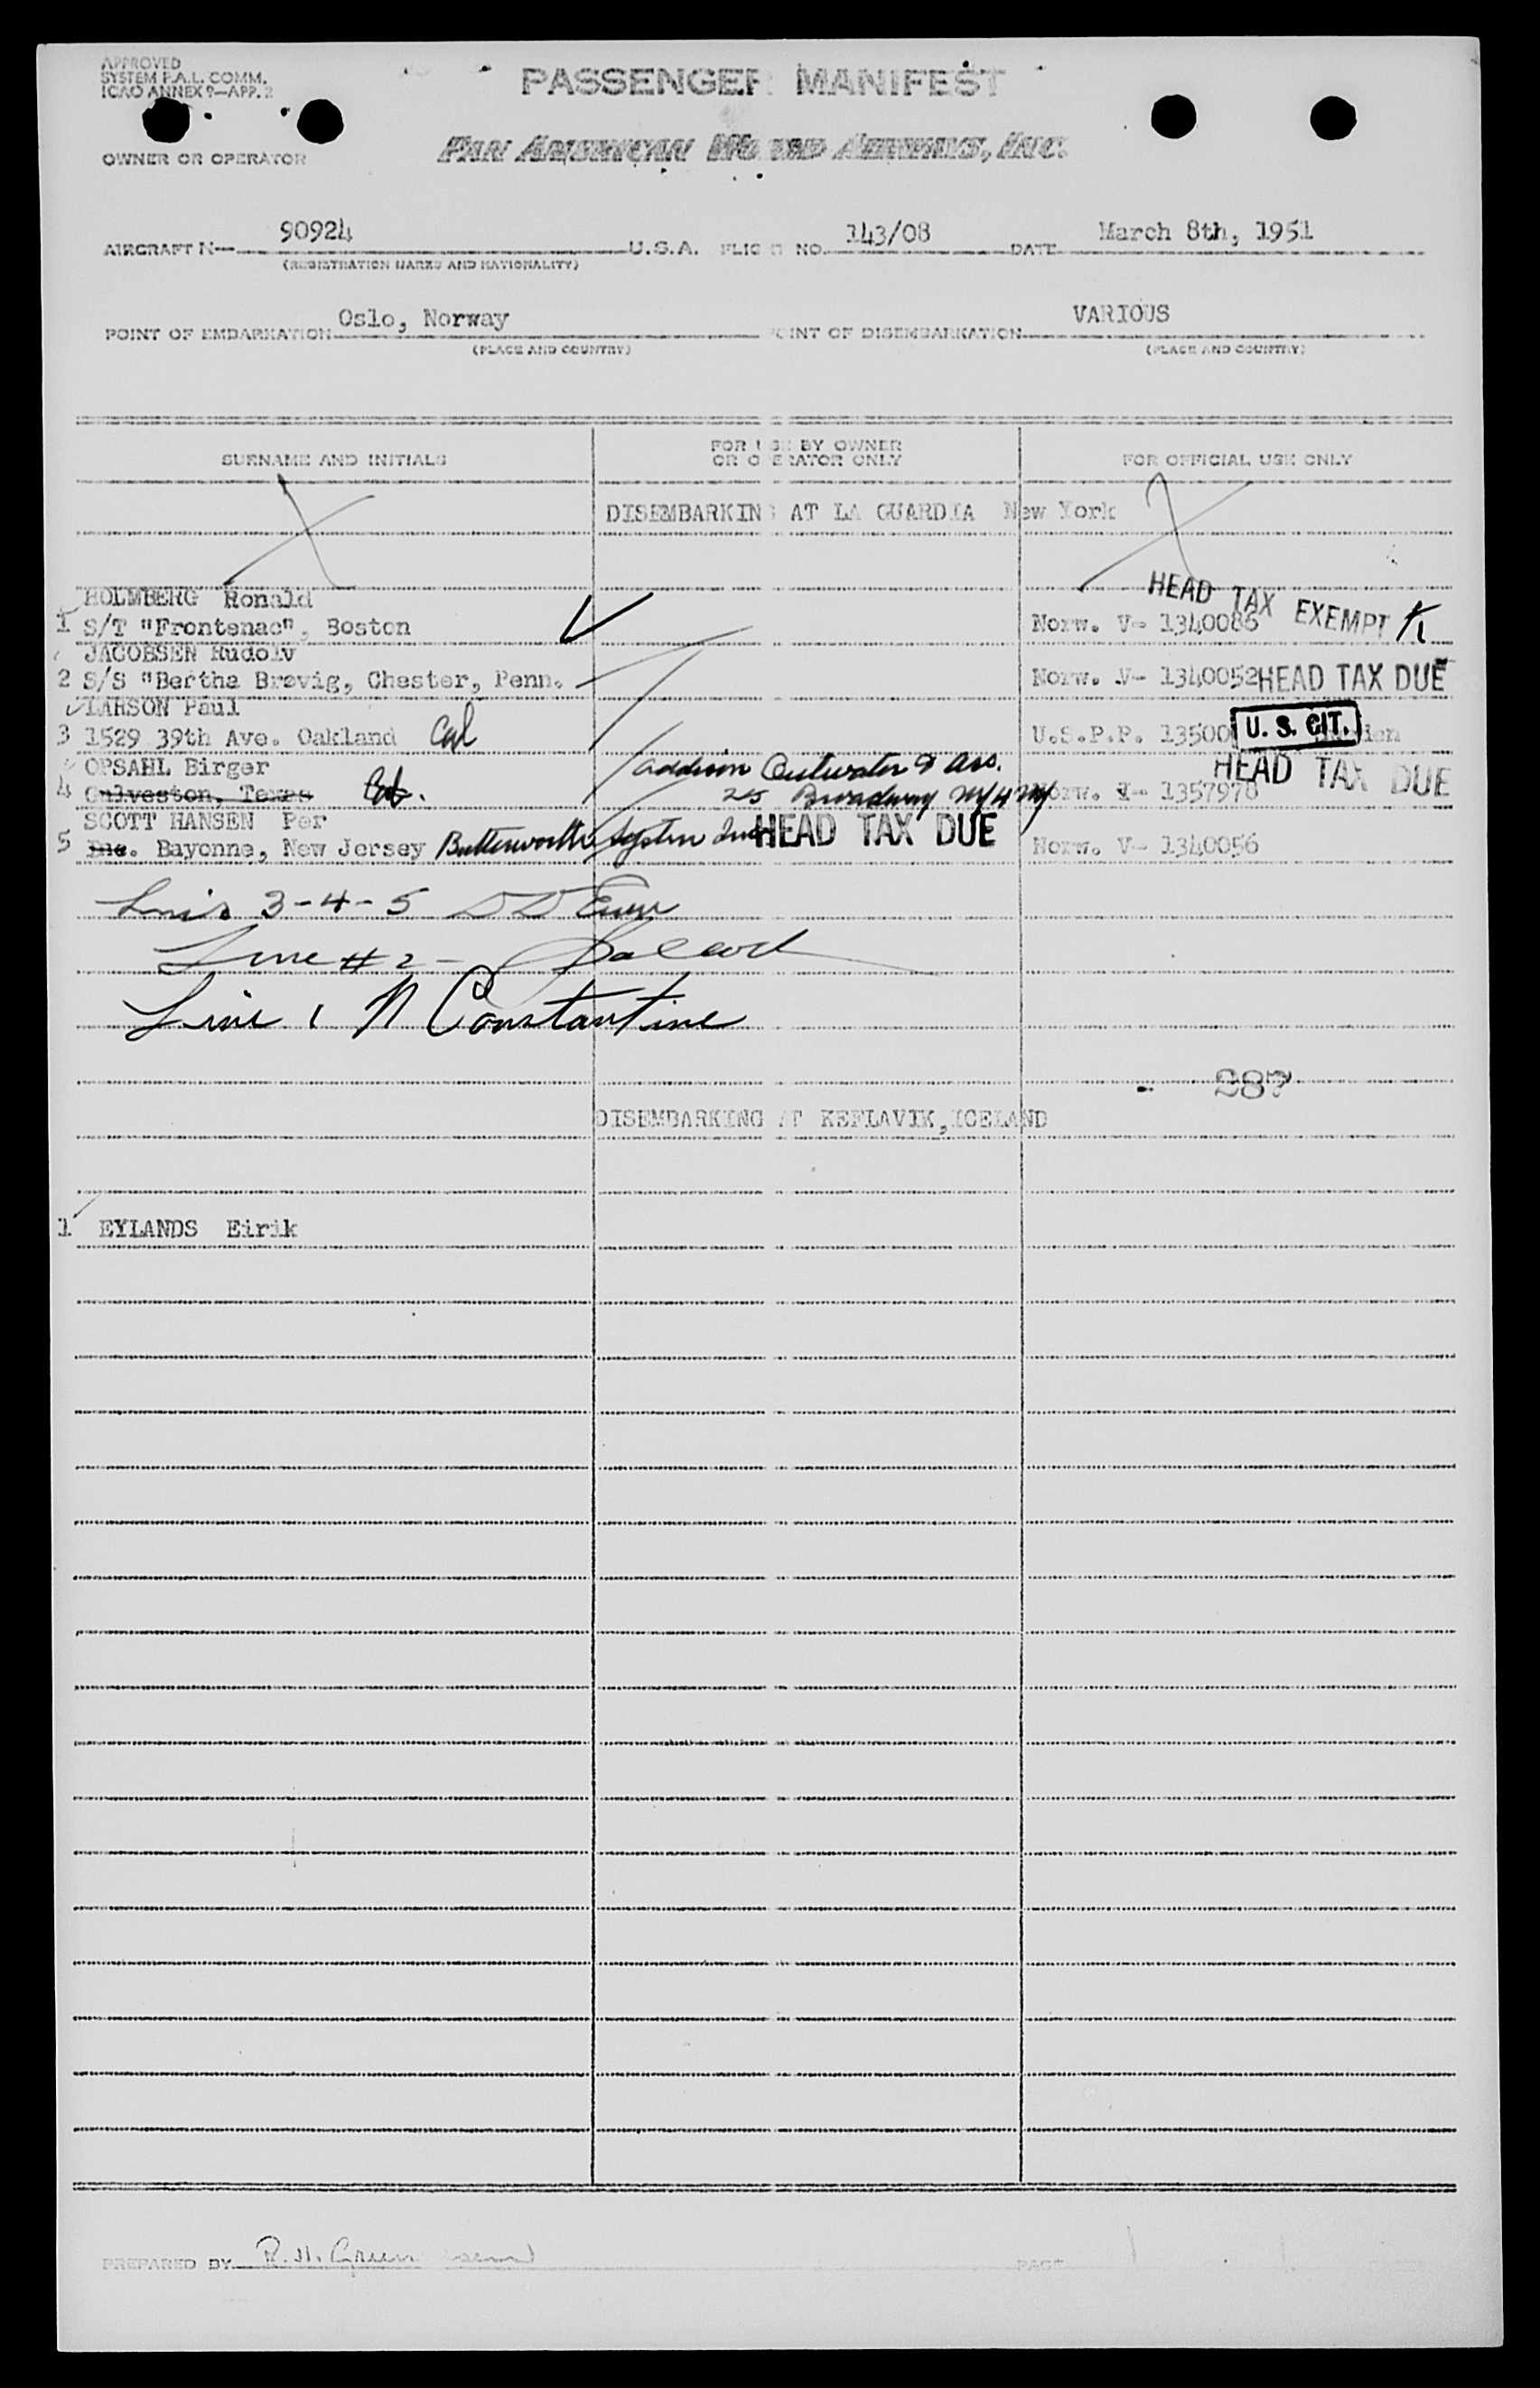 APPROVED
SYSTEM P.A.L. COMM.
ICAO ANNEX 9—APP. 2
PASSENGER MANIFEST
OWNER OR OPERATOR
PAN AMERICAN WORLD AIRWAYS, INC.
AIRCRAFT N— 90924 U.S.A. FLIGHT NO. 143/08 DATE March 8th, 1951
(REGISTRATION MARKS AND NATIONALITY)
POINT OF EMBARKATION Oslo, Norway POINT OF DISEMBARKATION VARIOUS
(PLACE AND COUNTRY) (PLACE AND COUNTRY)
SURNAME AND INITIALS
FOR USE BY OWNER
OR OPERATOR ONLY
FOR OFFICIAL USE ONLY
DISEMBARKING AT LA GUARDIA New York
HOLMBERG Ronald HEAD TAX EXEMPT
1 S/T "Frontenac", Boston Norw. V- 1340086
JACOBSEN Rudolv
2 S/S "Bertha Brøvig, Chester, Penn. Norw. V- 1340052 HEAD TAX DUE
LARSON Paul
3 1529 39th Ave. Oakland Cal U.S.P.P. 13500 U. S. CIT.
OPSAHL Birger Addison Outwater & Ass. HEAD TAX DUE
4 Galveston, Texas 25 Broadway NY 4 NY Norw. 1357978
SCOTT HANSEN Per
5 Inc. Bayonne, New Jersey Butterworth System Inc HEAD TAX DUE Norw. V- 1340056
3-4-5
Line # 2 -
Line 1 N Constantine
287
DISEMBARKING AT KEFLAVIK, ICELAND
1 EYLANDS Eirik
PREPARED BY R. H. Green PAGE 1